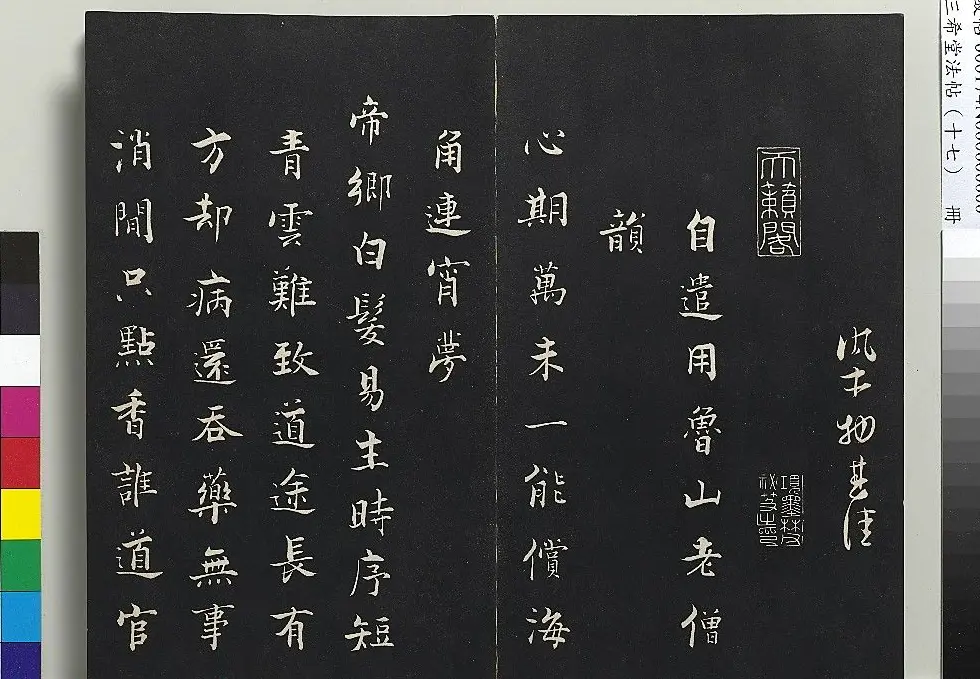 三希堂法帖（十七） 冊
物甚佳
天籟閣
項墨林
自遣用魯山老僧
韻
心期萬未一能償海
角連宵夢
帝鄉白髮易生時序短
青雲難致道途長有
方却病還吞藥無事
消閒只點香誰道官